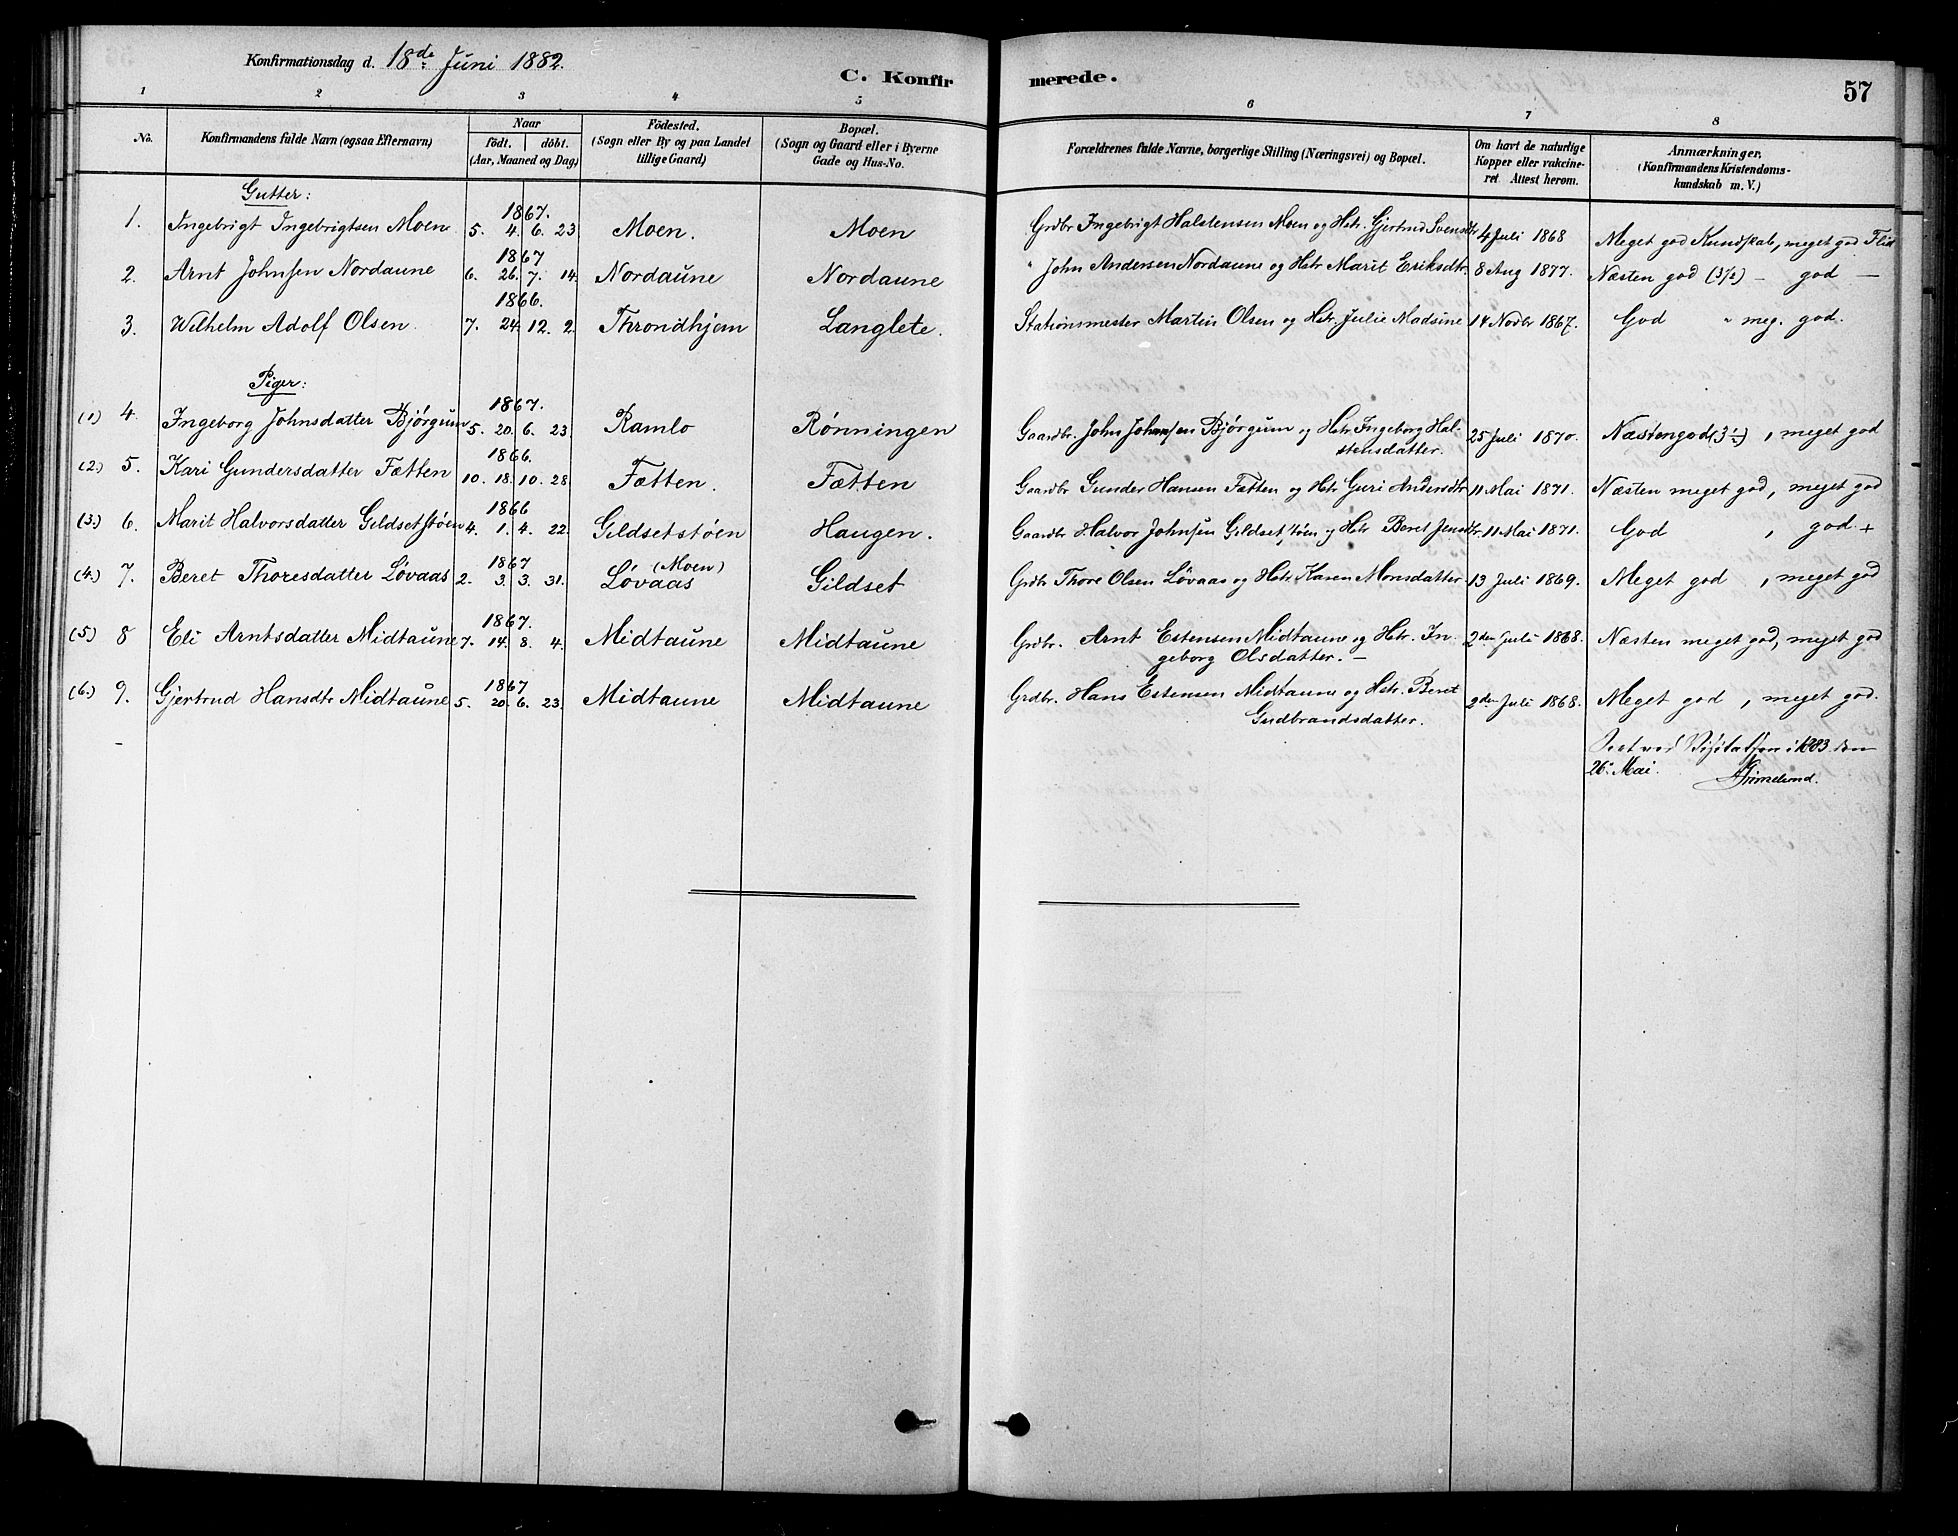 Konfirmationsdag d. 18de Juni 1882.
C. Konfirmerede.
57
1 2 3 4 5 6 7 8
No.
Konfirmandens fulde Navn (ogsaa Efternavn)
Naar
födt. döbt.
(Aar, Maaned og Dag)
Födested.
(Sogn eller By og paa Landet
tillige Gaard)
Bopæl.
(Sogn og Gaard eller i Byerne
Gade og Hus-No.
Forældrenes fulde Navne, borgerlige Stilling (Næringsvei) og Bopæl.
Om havt de naturlige
Kopper eller vakcine-
ret. Attest herom.
Anmærkninger.
(Konfirmandens Kristendoms-
kundskab m. V.)
Gutter:
1867.
1. Ingebrigt Ingebrigtsen Moen 5. 4. 6. 23 Moen. Moen Grdbr Ingebrigt Halstensen Moen og Hstr. Gjertrud Svensdtr 4 Juli 1868 Meget god Kundskab, meget god Flid
1867
2. Arnt Johnsen Nordaune 6. 26. 7. 14. Nordaune Nordaune " John Andersen Nordaune og Hstr Marit Eriksdtr. 8 Aug 1877. Næsten god (3/2) – god –
1866.
3. Wilhelm Adolf Olsen. 7. 24. 12. 2. Throndhjem Langlete. Stationsmester Martin Olsen og Hstr Julie Madsine 14 Novbr 1867. God " meg. god.
Piger:
1867.
(1) 4. Ingeborg Johnsdatter Bjørgum 5. 20. 6. 23. Ramlo Rønningen Gaardbr. John Johnsen Bjørgum og Hstr Ingeborg Hal-
stensdatter. 25 Juli 1870. Næstengod (3÷), meget god
1866.
(2.) 5. Kari Gundersdatter Fætten 10. 18. 10. 28. Fætten. Fætten Gaardbr Gunder Hansen Fætten og Hstr Guri Andersdtr 11 Mai 1871. Næsten meget god, meget god
1866
(3.) 6. Marit Halvorsdatter Gildsetstøen 4. 1. 4. 22. Gildsetstøen Haugen. Gaardbr Halvor Johnsen Gildsetstøen og Hstr Beret Jensdtr. 11 Mai 1871. God , god +
1867 (Moen)
(4.) 7. Beret Thoresdatter Løvaas 2. 3. 3. 31. Løvaas Gildset Grdbr Thore Olsen Løvaas og Hstr Karen Monsdatter 13 Juli 1869. Meget god , meget god
1867.
(5) 8 Eli Arntsdatter Midtaune 7. 14. 8. 4. Midtaune Midtaune Grdbr. Arnt Estensen Midtaune og Hstr. In-
geborg Olsdatter. – 2den Juli 1868. Næsten meget god, meget god
1867
(6.) 9. Gjertrud Hansdtr Midtaune 5. 20. 6. 23. Midtaune Midtaune Grdbr. Hans Estensen Midtaune og Hstr. Beret
Gudbrandsdatter. 2den Juli 1868. Meget god , meget god.
Seet ved Visitatsen i 1883 den
26. Mai. Grimelund.